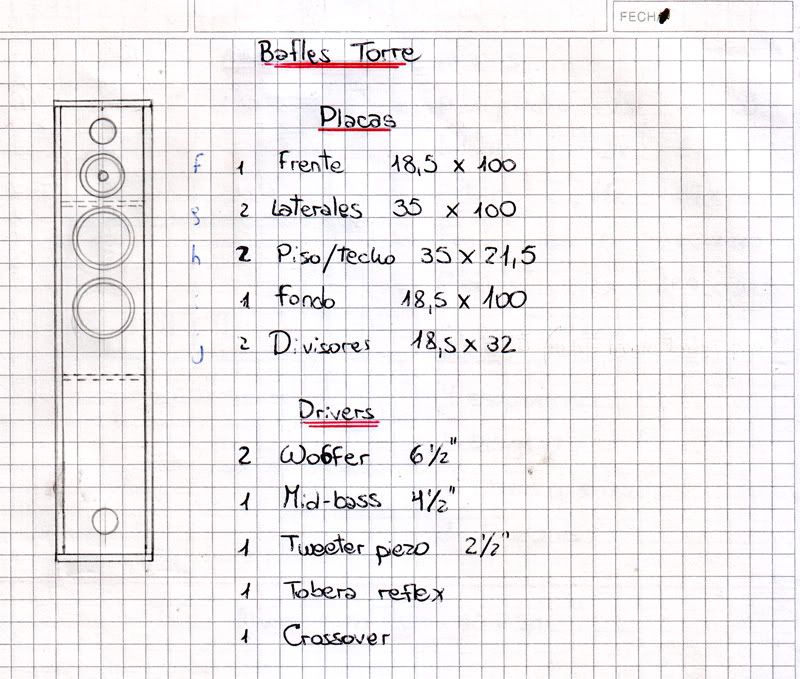 FECHA
Bafles Torre
Placas
f 1 Frente 18,5 x 100
g 2 Laterales 35 x 100
h 2 Piso/techo 35 x 21,5
i 1 Fondo 18,5 x 100
j 2 Divisores 18,5 x 32
Drivers
2 Woffer 6 1/2"
1 Mid-bass 4 1/2"
1 Tweeter piezo 2 1/2"
1 Tobera reflex
1 Crossover